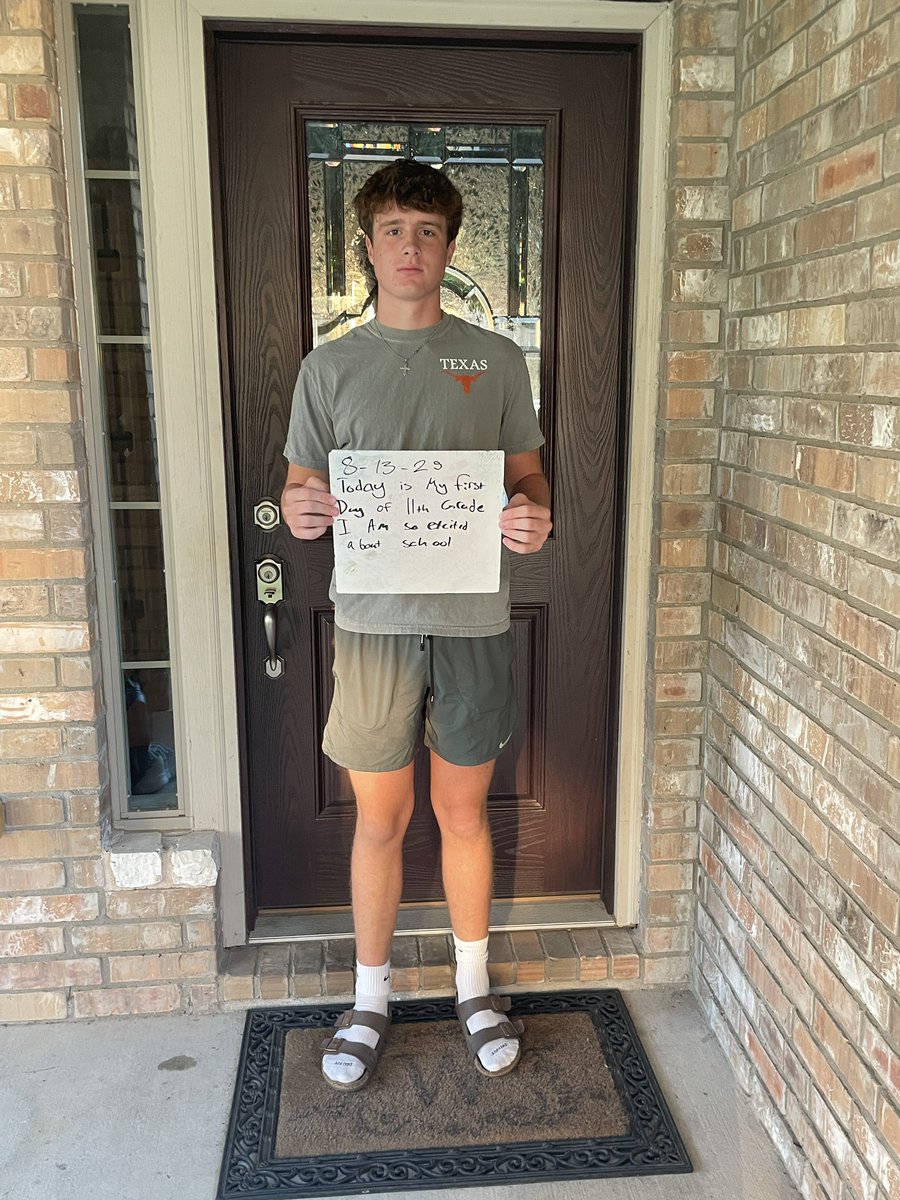 TEXAS
8-13-29
Today is My first
Day of 11th Grade
I Am so excited
about school